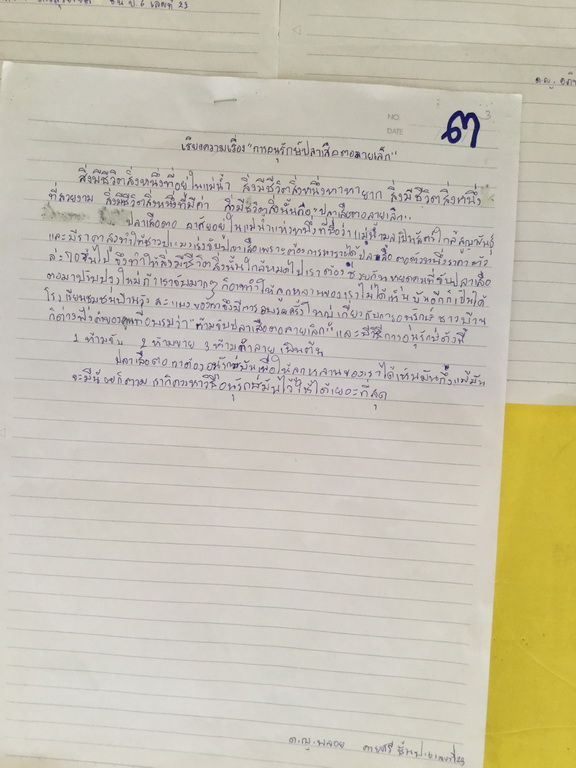 ชั้น ป.6 เลขที่ 23
ด.ญ.
NO. 3
DATE
๓
เรียงความเรื่อง "การอนุรักษ์ปลาเสือตอลายเล็ก"
สิ่งมีชีวิตสิ่งหนึ่งที่อยู่ในแม่น้ำ สิ่งมีชีวิตสิ่งหนึ่งหาหายาก สิ่งมีชีวิตสิ่งหนึ่ง
ที่สวยงาม สิ่งมีชีวิตสิ่งหนึ่งที่มีค่า สิ่งมีชีวิตสิ่งนั้นคือ "ปลาเสือตอลายเล็ก"
ปลาเสือตอ อาศัยอยู่ในแม่น้ำแห่งหนึ่งที่ชื่อว่าแม่น้ำ ใกล้สูญพันธุ์
และมีราคาสูงทำให้ชาวประมงจับปลาเสือเพราะต้องการหารายได้ ปลาเสือตอตัวหนึ่งราคาตัว
ละ 70 ขึ้นไป จึงทำให้สิ่งมีชีวิตสิ่งนั้นใกล้หมดไป เราต้องช่วยกันหยุดคนที่จับปลาเสือ
ตอมาปรับปรุงใหม่ ถ้าเราจับมากๆ ก็อาจทำให้ลูกหลานของเราไม่ได้เห็น มันอีกก็เป็นได้
โรงเรียนชุมชนบ้านวัง จึงมีการอบรมครั้งใหญ่เกี่ยวกับการอนุรักษ์ ชาวบ้าน
ก็ต่างฟังคำของคนที่อบรมว่า "ห้ามจับปลาเสือตอลายเล็ก" และมีวิธีการอนุรักษ์ดังนี้
1 ห้ามจับ 2 ห้ามขาย 3 ห้ามทำลาย เป็นต้น
ปลาเสือตอ เราต้องอนุรักษ์มันเพื่อให้ลูกหลานของเราได้เห็นมันถึงแม้มัน
จะมีน้อยก็ตาม เราก็ควรหาวิธีอนุรักษ์มันไว้ให้ได้เยอะที่สุด
ด.ญ.พลอย สายศรี ชั้นป.6 เลขที่